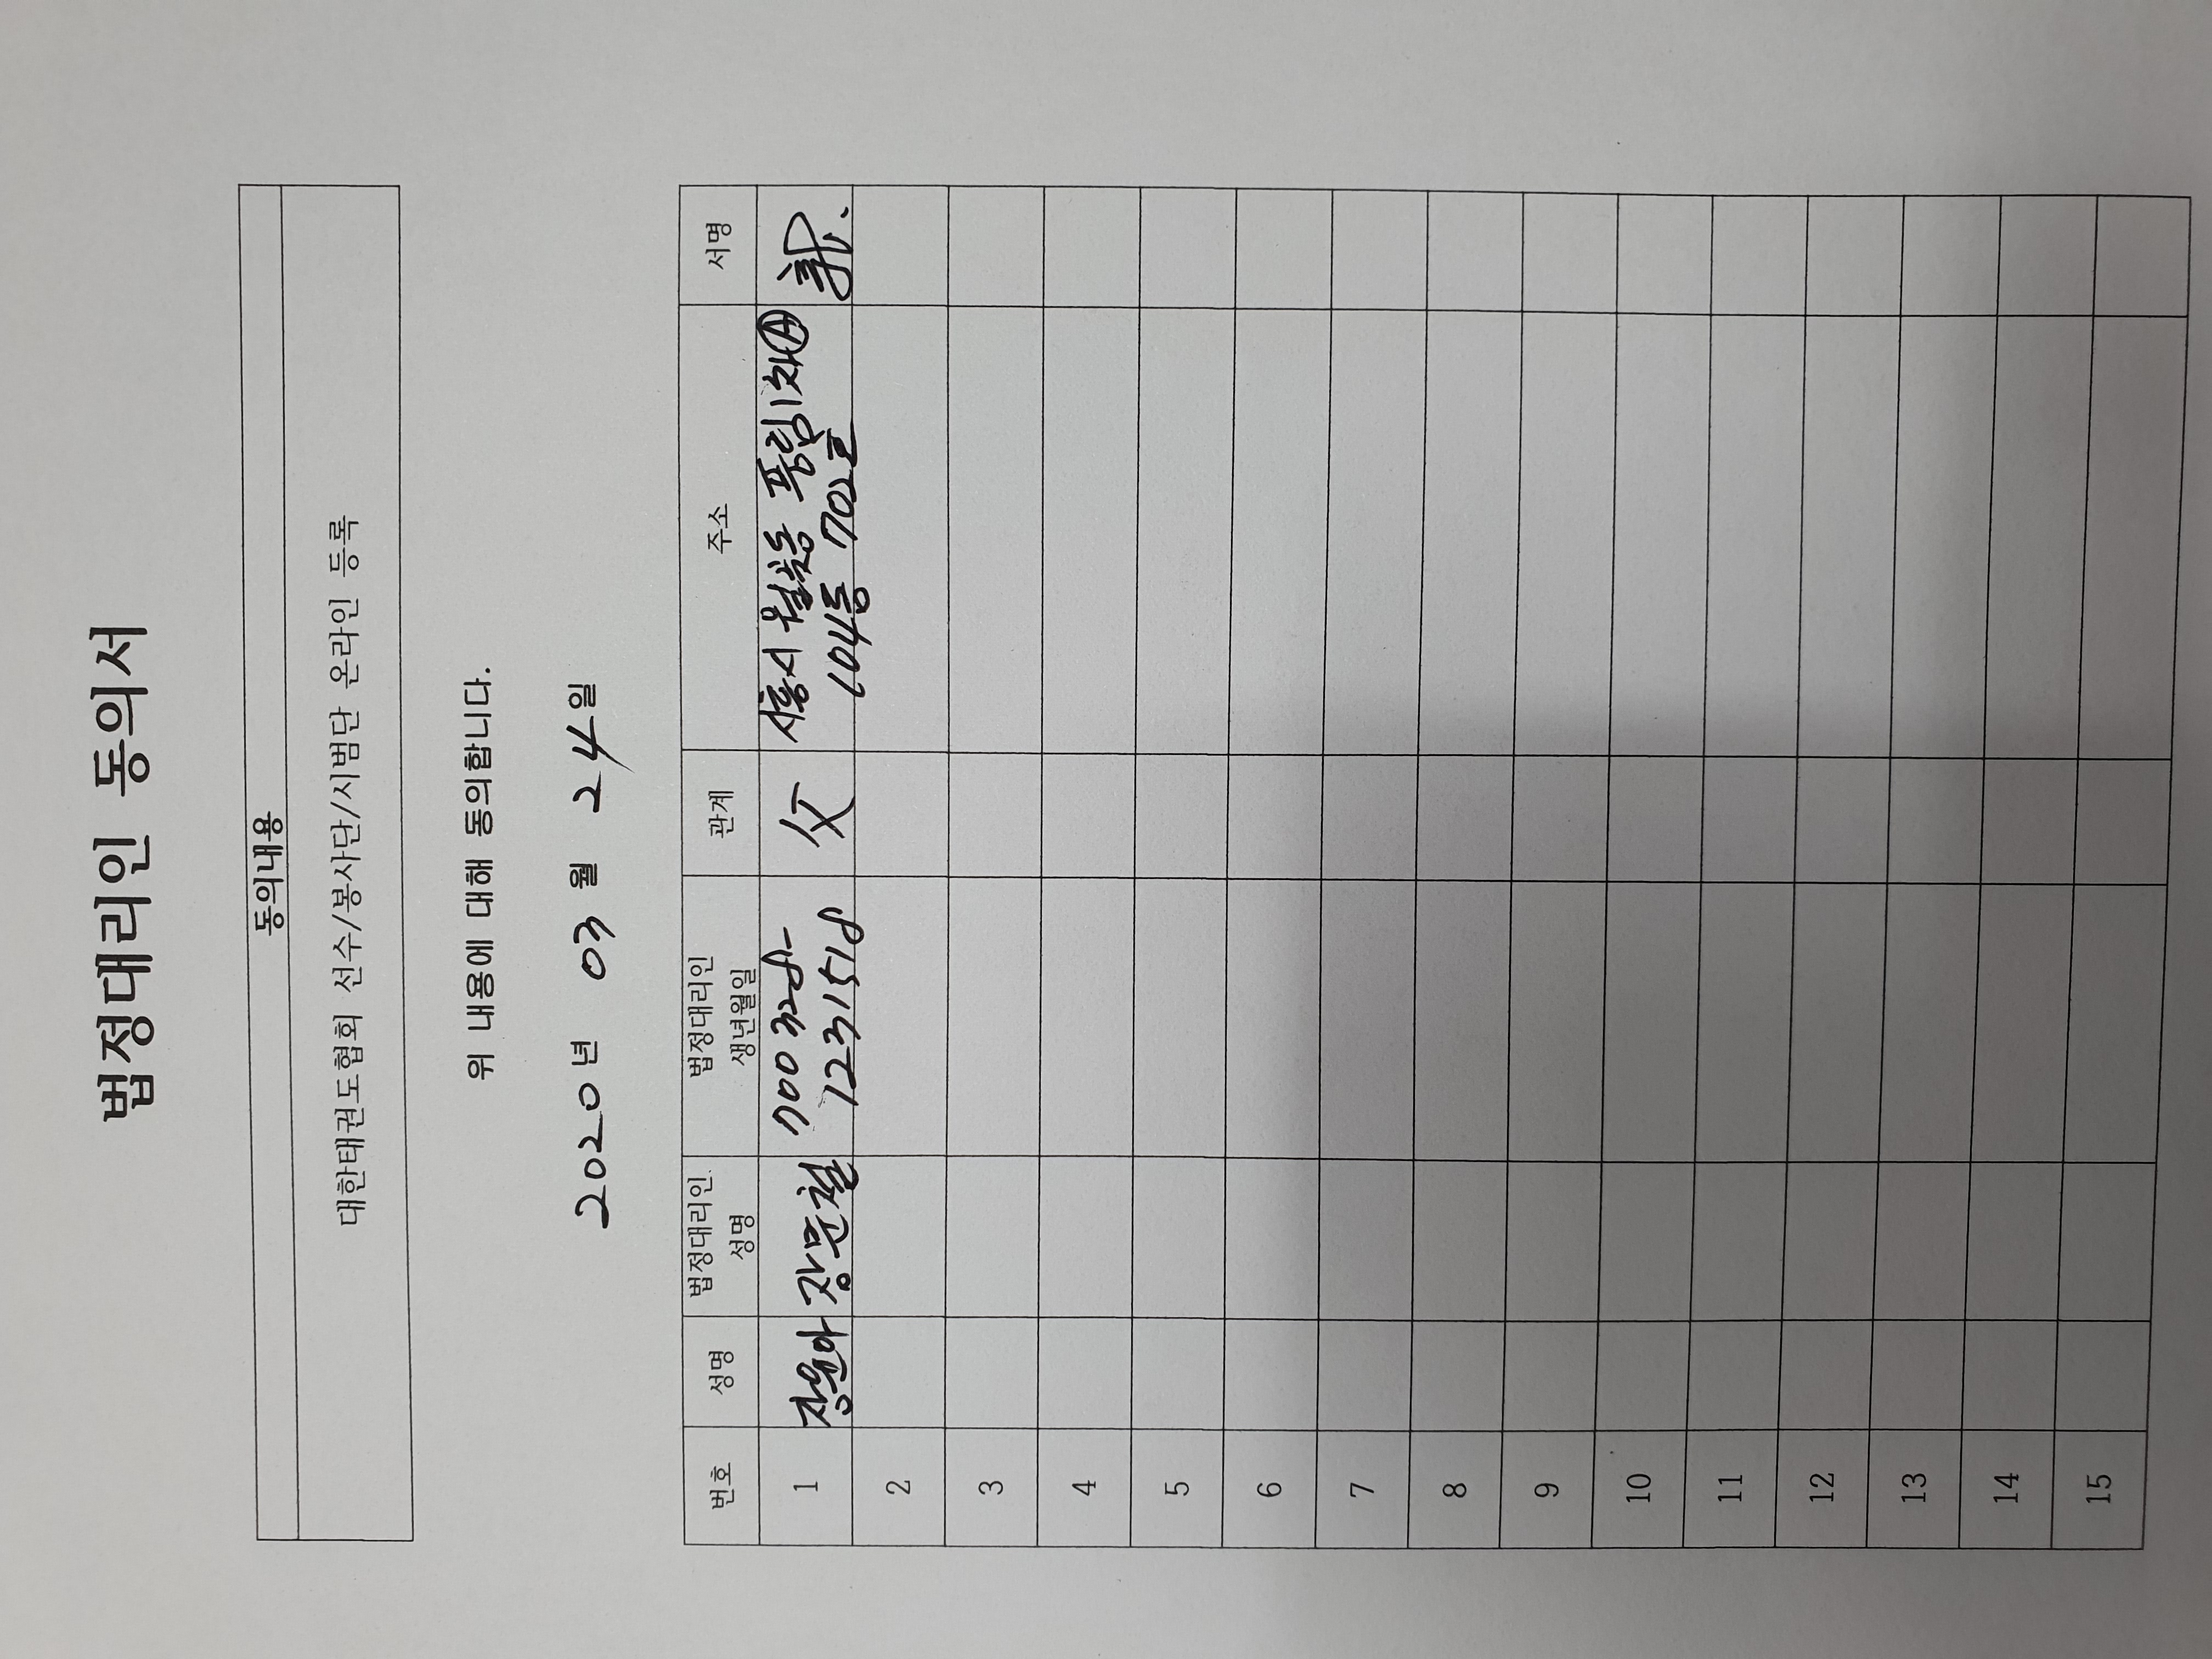 법정대리인 동의서
동의내용
대한태권도협회 선수/봉사단/시범단 온라인 등록
위 내용에 대해 동의합니다.
2020년 03월 24일
번호 성명 법정대리인 성명 법정대리인 생년월일 관계 주소 서명
1 장윤아 장문철 700328- 父 시흥시 월곶동 풍림1차Ⓐ
1231518 104동 702호
2
3
4
5
6
7
8
9
10
11
12
13
14
15